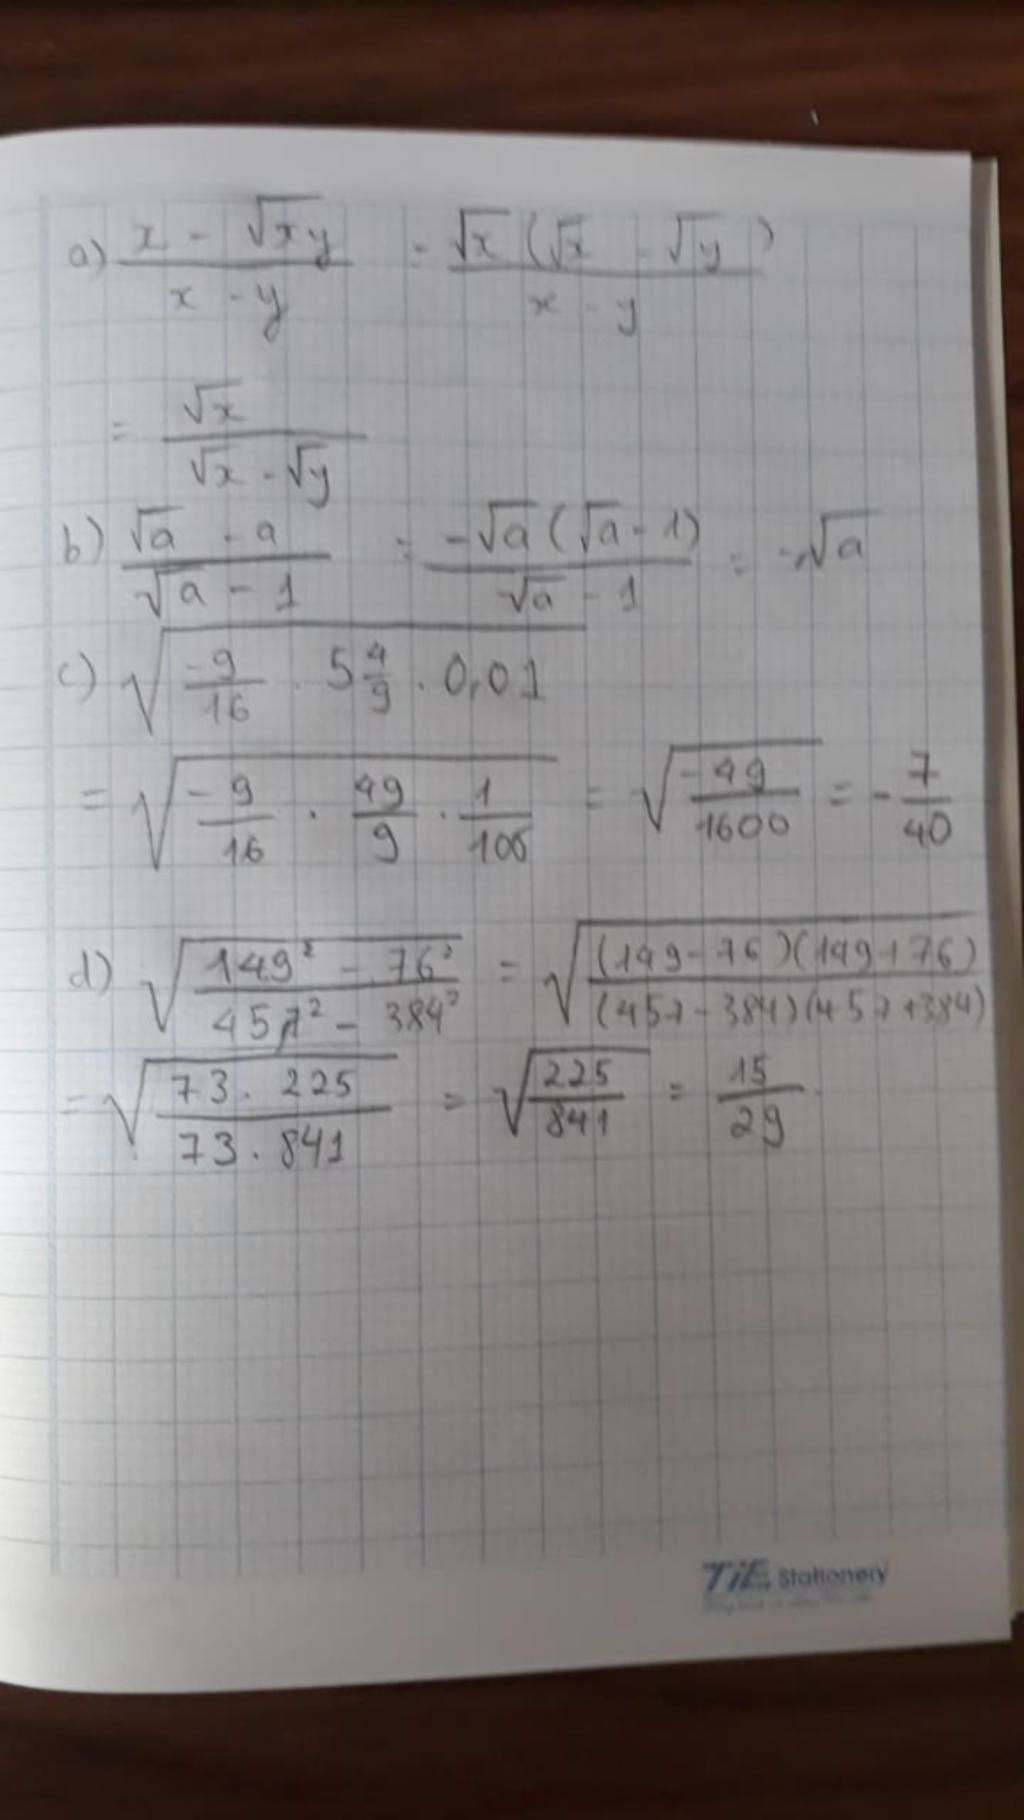 a) (x - √xy)/(x - y) = √x(√x - √y)/(x - y)
= √x/(√x - √y)
b) (√a - a)/(√a - 1) = -√a(√a - 1)/(√a - 1) = -√a
c) √(-9/16 . 5 4/9 . 0,01)
= √(-9/16 . 49/9 . 1/100) = √(-49/1600) = -7/40
d) √((149² - 76²)/(457² - 384²)) = √((149-76)(149+76)/(457-384)(457+384))
= √(73.225/73.841) = √(225/841) = 15/29.
TiE Stationery